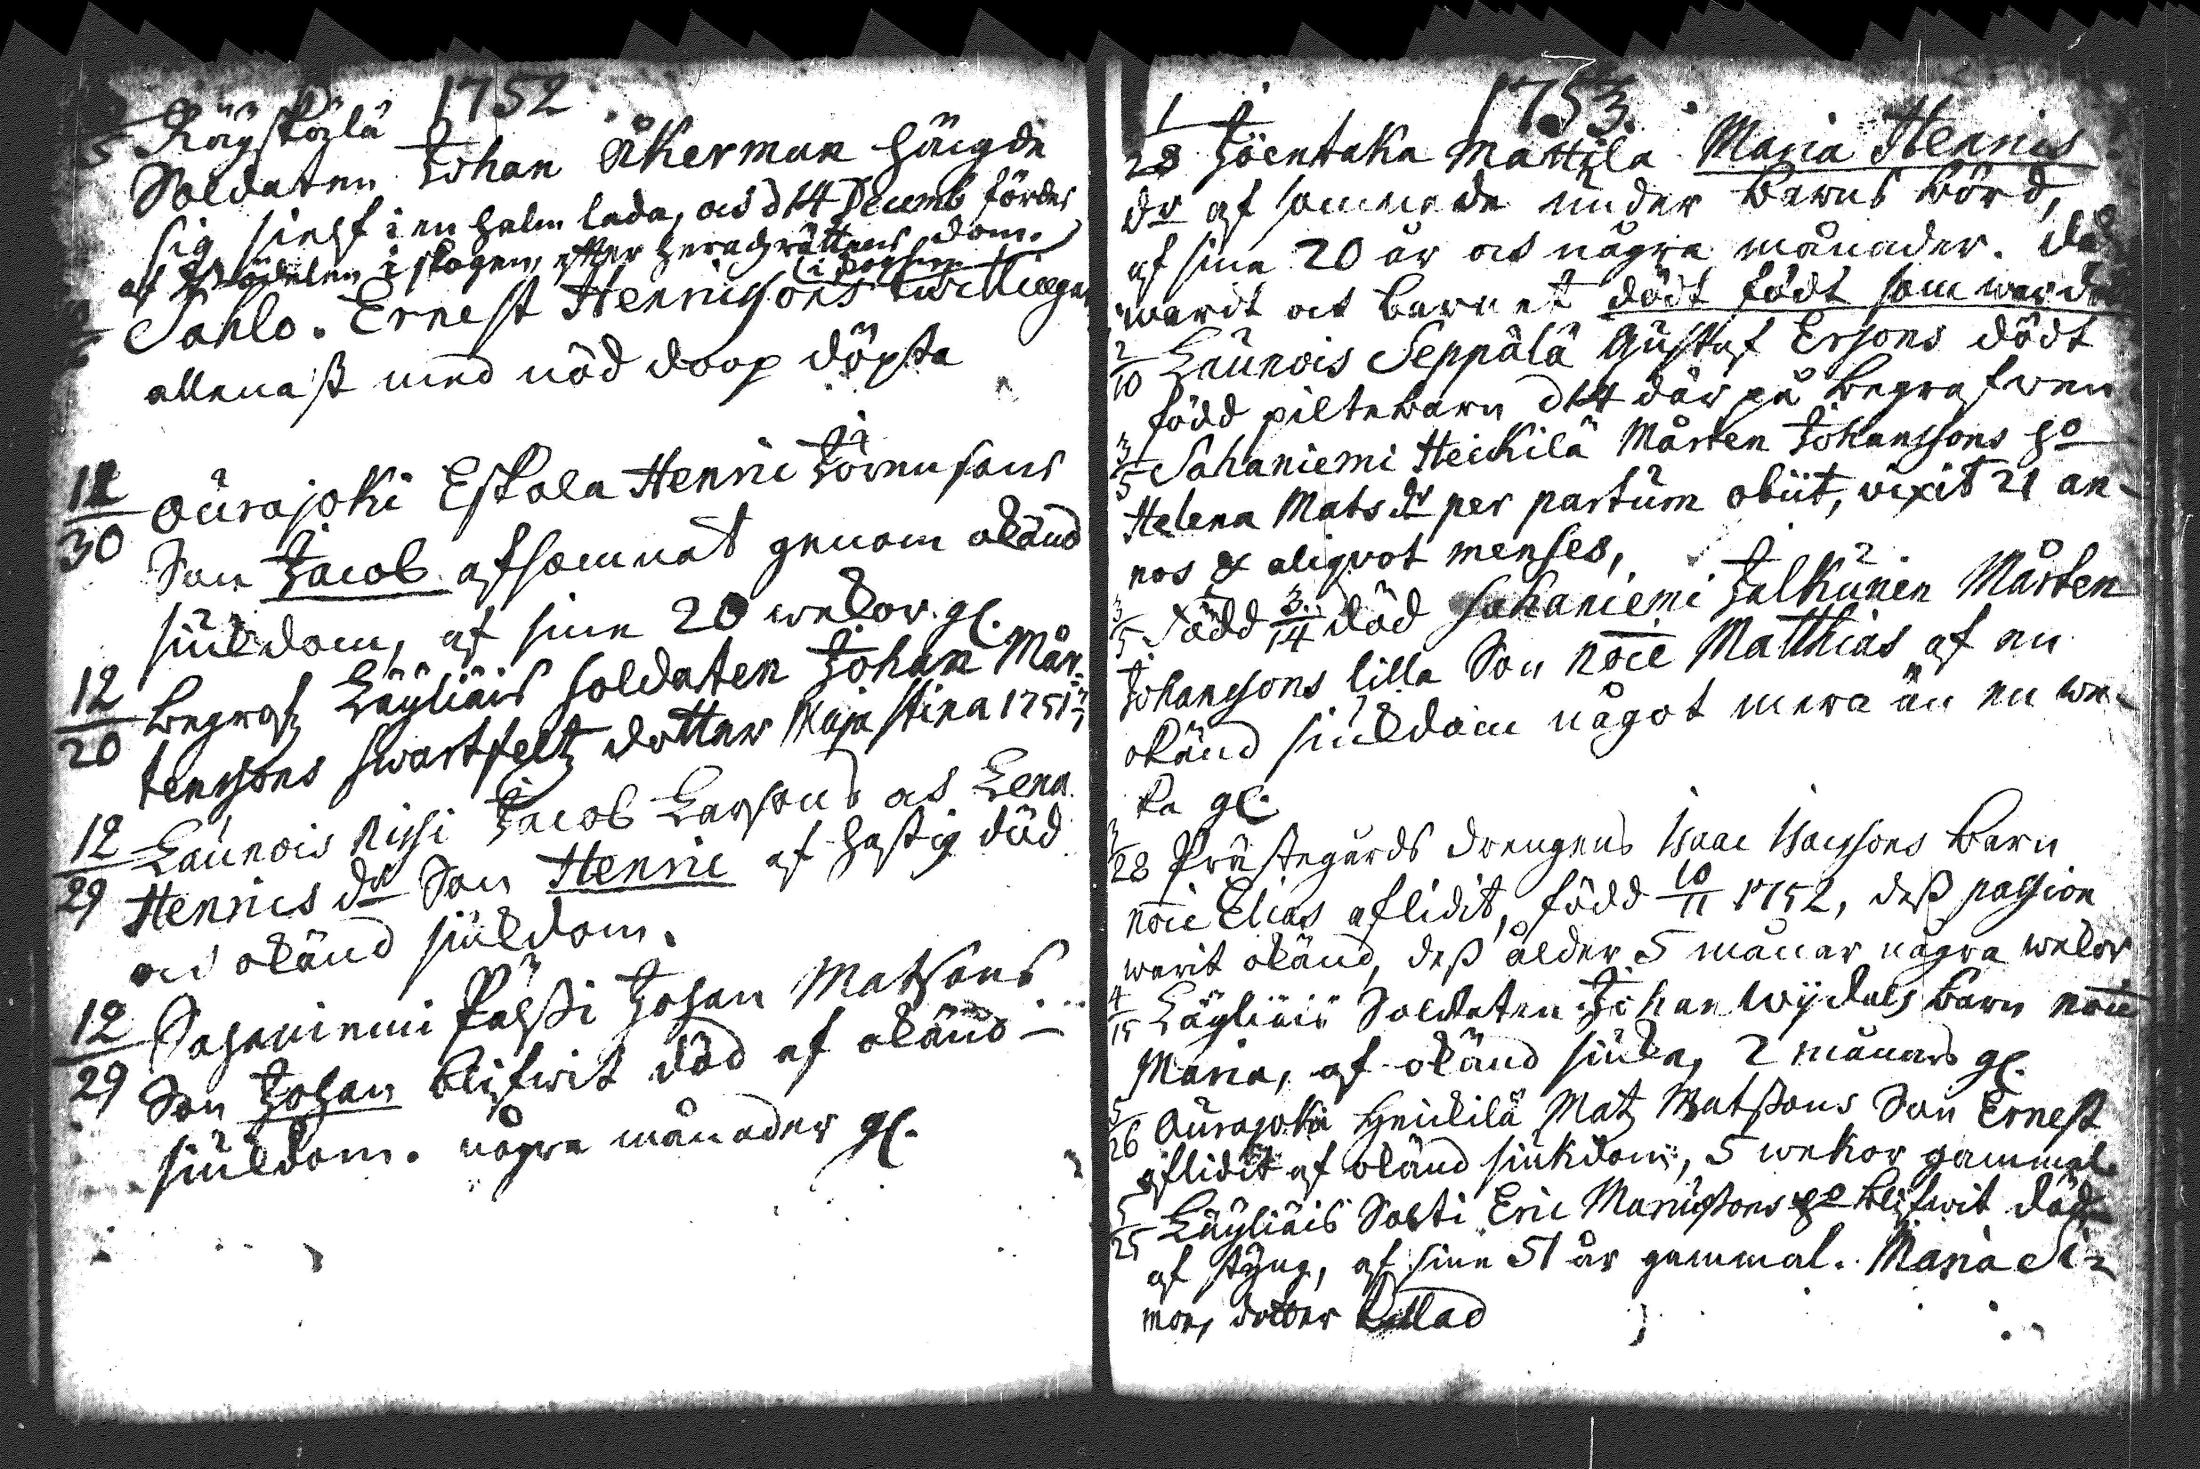 1752
5 Räyskylä
Soldaten Johan Åkerman hängde
sig sielf i en halm lada, och d 14 Decemb fördes
af bödelen i skogen, efter heradzrättens dom.
Sahlo. Ernest Henrissons twillingar
allenast med nöd doop döpta
12/30 Ourajoki Eskola Henric Jörensons
Son Jacob afsomnat genom okänd
siukdom, af sine 20 wekor gl.
12/20 Begrafs Läyliäis soldaten Johan Mår-
tenssons swartfeltz dotter Maja Stina 1751
12/29 Launois Rissi Jacob Larssons och Lena
Henrics dr Son Henric af hastig död
och okänd siukdom.
12/29 Sahaniemi Pälssi Johan Matssons
Son Johan blifwit död af okänd
siukdom. några månader gl.
1753.
1/28 Jöentaka Mattila Maria Henrics
dr afsomnade under barns börd,
af sine 20 år och några månader. dödt
wardt och barnet dödt födt som wardt
2/10 Launois Seppälä Gustaf Ersons dödt
född piltebarn d 14 där på begrafwen
3/5 Sahaniemi Heickilä Mårten Johanssons ho
Helena Mats dr per partum obiit, vixit 21 an-
nos & aliqvot menses,
3/5 Född 3/14 död Sahaniemi Jalkanen Mårten
Johanssons lilla Son noie Matthias af en
okänd siukdom något mera än en we-
ka gl.
3/28 Prästegårds drengens Isaac Isacssons barn
noie Elias aflidit, född 10/11 1752, dess passion
warit okänd, dess ålder 5 månar några wekor
4/15 Läyliäis Soldaten Johan Wijdals barn noie
Maria, af okänd siuka, 2 månars gl.
5/26 Ourajoki Heickilä Matz Matssons Son Ernest
aflidit af okänd siukdom, 5 wekor gammal
5/25 Läyliäis Sakti Eric Marcussons ho blifwit död
af styng, af sine 51 år gammal. Maria Si-
mons dotter kallad